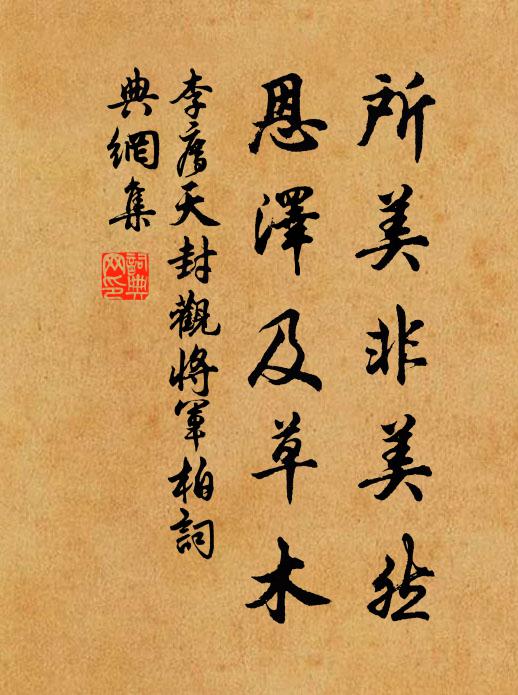 所美非美然
恩澤及草木
李廌天封觀將軍柏詞
典網集
詞典
网印